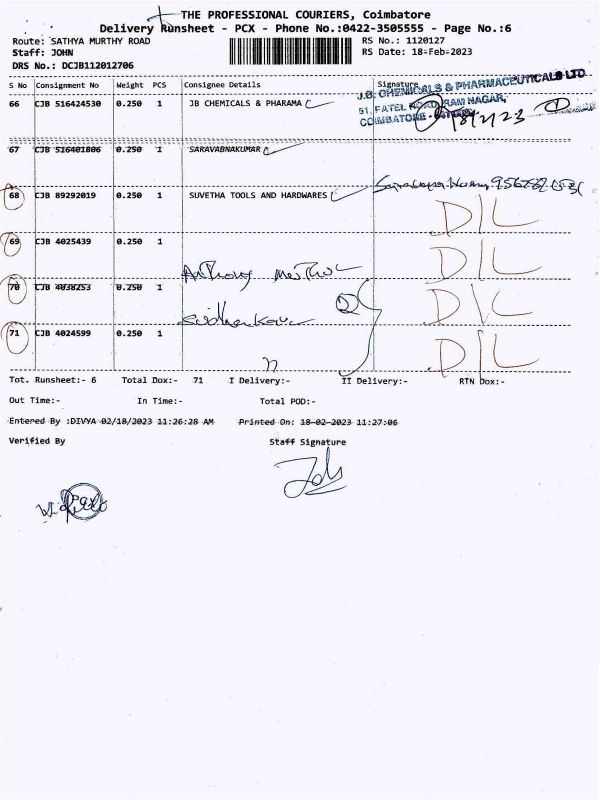 THE PROFESSIONAL COURIERS, Coimbatore
Delivery Runsheet - PCX - Phone No.:0422-3505555 - Page No.:6
Route: SATHYA MURTHY ROAD RS No.: 1120127
Staff: JOHN RS Date: 18-Feb-2023
DRS No.: DCJB112012706
S No Consignment No Weight PCS Consignee Details Signature
J.B. CHEMICALS & PHARMACEUTICALS LTD
66 CJB 516424530 0.250 1 JB CHEMICALS & PHARAMA
51, PATEL ROAD, RAM NAGAR,
COIMBATORE - 18/2/23 1
67 CJB 516401806 0.250 1 SARAVABNAKUMAR
68 CJB 89292019 0.250 1 SUVETHA TOOLS AND HARDWARES
D/L
69 CJB 4025439 0.250 1 D/L
Anthony
70 CJB 4038253 0.250 1 D/L
71 CJB 4024599 0.250 1 D/L
Tot. Runsheet:- 6 Total Dox:- 71 I Delivery:- II Delivery:- RTN Dox:-
Out Time:- In Time:- Total POD:-
Entered By :DIVYA 02/18/2023 11:26:28 AM Printed On: 18-02-2023 11:27:06
Verified By Staff Signature